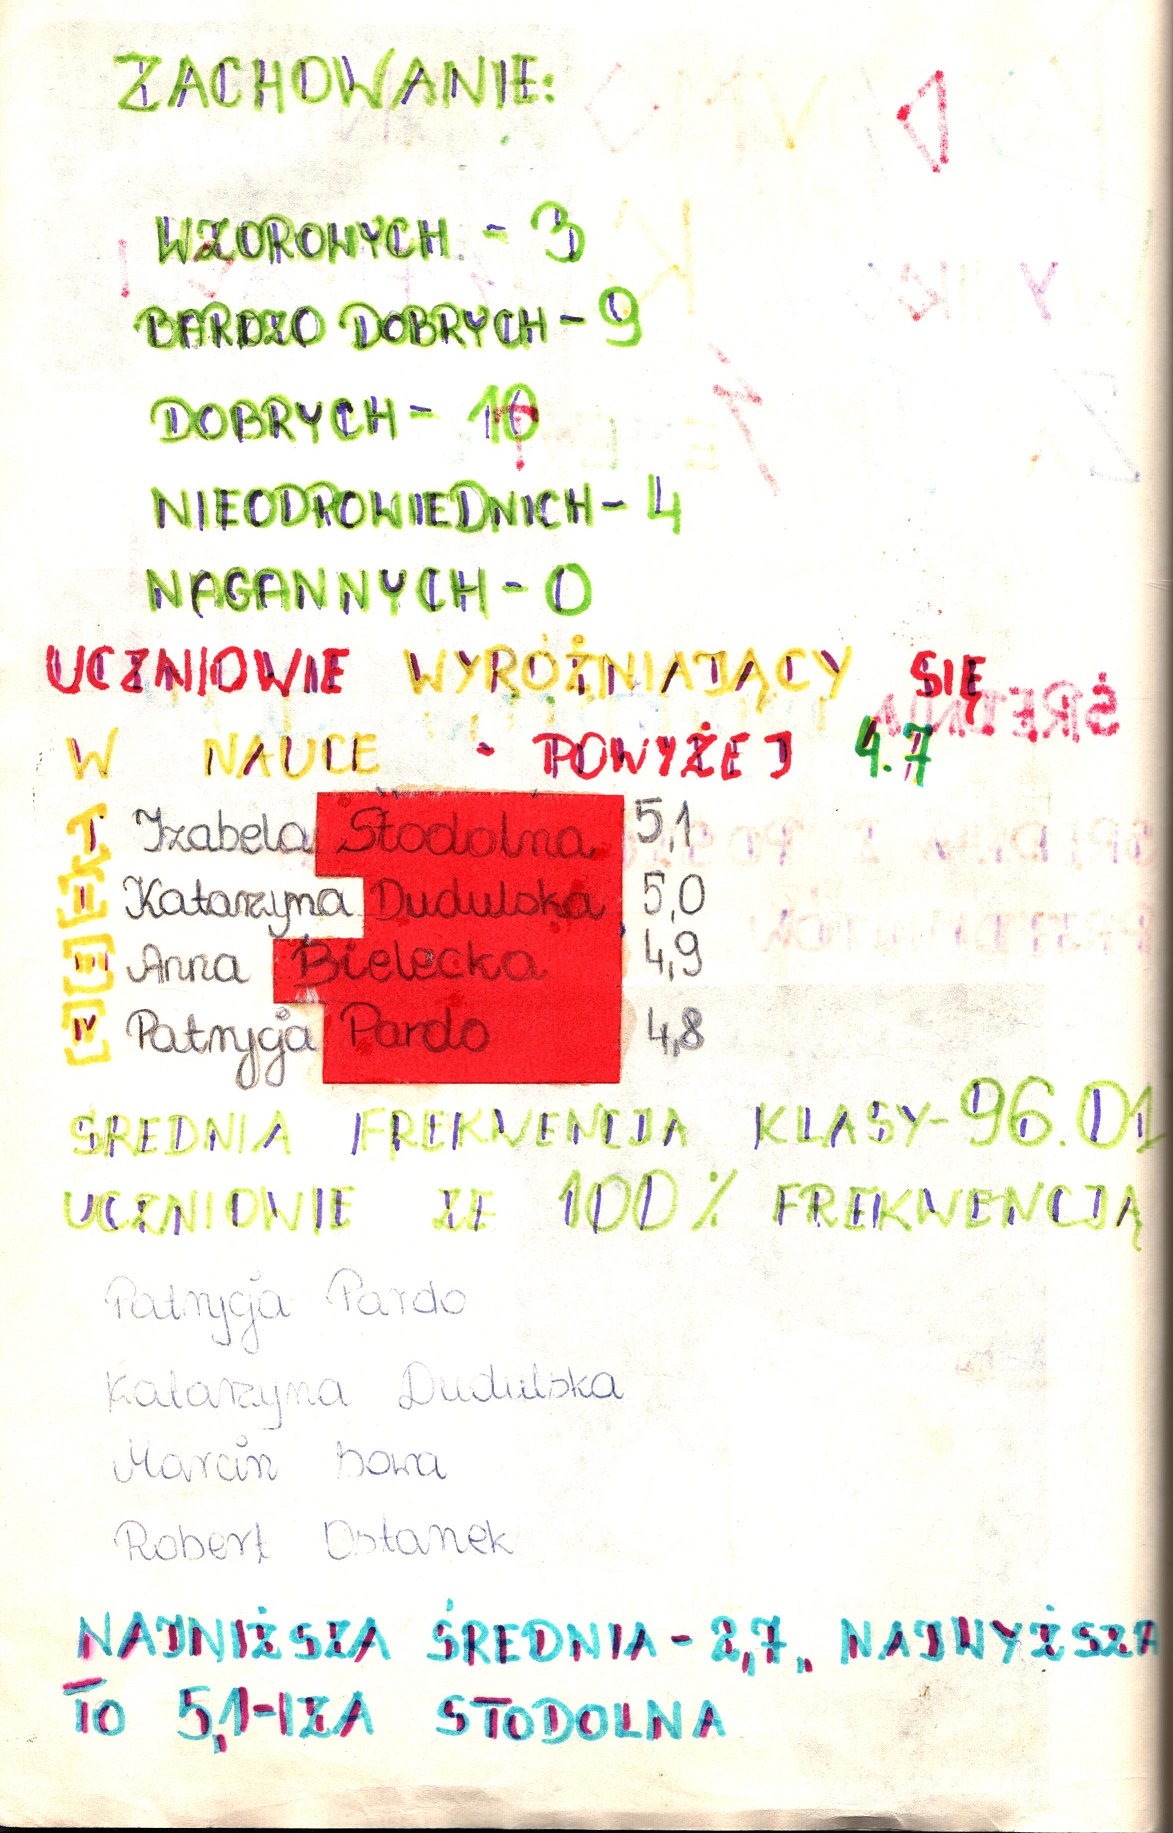 ZACHOWANIE:
WZOROWYCH - 3
BARDZO DOBRYCH - 9
DOBRYCH - 10
NIEODPOWIEDNICH - 4
NAGANNYCH - 0
UCZNIOWIE WYRÓŻNIAJĄCY SIĘ
W NAUCE - POWYŻEJ 4.7
I Izabela Stodolna 5,1
II Katarzyna Dudulska 5,0
III Anna Bielecka 4,9
IV Patrycja Pardo 4,8
ŚREDNIA FREKWENCJA KLASY - 96.01
UCZNIOWIE ZE 100% FREKWENCJĄ
Patrycja Pardo
Katarzyna Dudulska
Marcin
Robert Ostanek
NAJNIŻSZA ŚREDNIA - 2,7, NAJWYŻSZA
TO 5,1-IZA STODOLNA